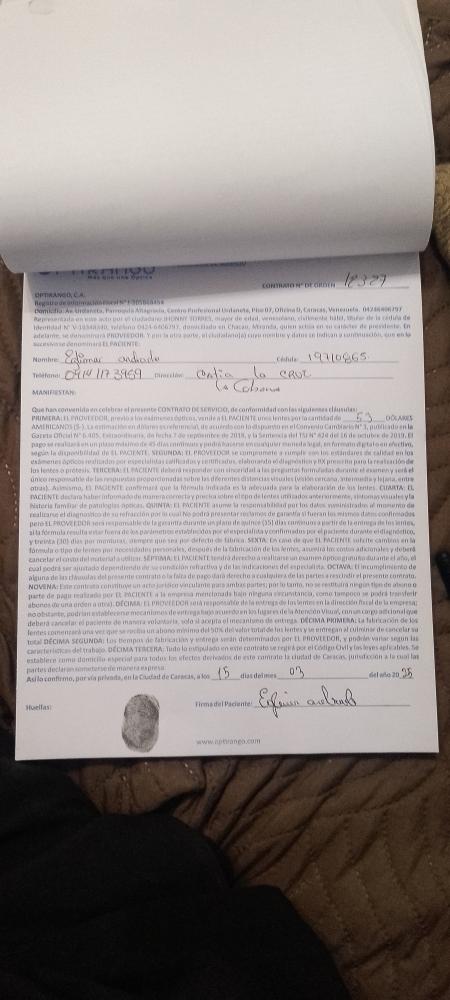 OPTIRANGO
MÁS QUE UNA ÓPTICA
CONTRATO Nº DE ORDEN 12327
OPTIRANGO, C.A.
Registro de Información Fiscal Nº
Domicilio: Av. Urdaneta, Parroquia Altagracia, Centro Profesional Urdaneta, Piso 07, Oficina D, Caracas, Venezuela. 04248406797
Representada en este acto por el ciudadano JHONNY TORRES, mayor de edad, venezolano, civilmente hábil, titular de la cédula de
Identidad Nº teléfono domiciliado en Chacao, Miranda, quien actúa en su carácter de presidente. En
adelante, se denominará PROVEEDOR. Y por la otra parte, el ciudadano(a) cuyo nombre y datos se indican a continuación, que en lo
sucesivo se denominará EL PACIENTE:
Nombre: andrade Cédula: 19710865
Teléfono: 0414 1173959 Dirección: la CRUZ
MANIFIESTAN:
Que han convenido en celebrar el presente CONTRATO DE SERVICIO, de conformidad con las siguientes cláusulas:
PRIMERA: EL PROVEEDOR, previo a los exámenes ópticos, vende a EL PACIENTE unos lentes por la cantidad de 53 DÓLARES
AMERICANOS ($-). La estimación en dólares es referencial, de acuerdo con lo dispuesto en el Convenio Cambiario Nº 1, publicado en la
Gaceta Oficial Nº 6.405, Extraordinaria, de fecha 7 de septiembre de 2018, y la Sentencia del TSJ Nº 424 del 16 de octubre de 2019. El
pago se realizará en un plazo máximo de 45 días continuos y podrá hacerse en cualquier moneda legal, en formato digital o en efectivo,
según la disponibilidad de EL PACIENTE. SEGUNDA: EL PROVEEDOR se compromete a cumplir con los estándares de calidad en los
exámenes ópticos realizados por especialistas calificados y certificados, elaborando el diagnóstico y RX prescrita para la realización de
los lentes o prótesis. TERCERA: EL PACIENTE deberá responder con sinceridad a las preguntas formuladas durante el examen y será el
único responsable de las respuestas proporcionadas sobre las diferentes distancias visuales (visión cercana, intermedia y lejana, entre
otras). Asimismo, EL PACIENTE confirmará que la fórmula indicada es la adecuada para la elaboración de los lentes. CUARTA: EL
PACIENTE declara haber informado de manera correcta y precisa sobre el tipo de lentes utilizados anteriormente, síntomas visuales y la
historia familiar de patologías ópticas. QUINTA: EL PACIENTE asume la responsabilidad por los datos suministrados al momento de
realizarse el diagnóstico de su refracción por lo cual No podrá presentar reclamos de garantía si fueran los mismos datos confirmados
pero EL PROVEEDOR será responsable de la garantía durante un plazo de quince (15) días continuos a partir de la entrega de los lentes,
si la fórmula resulta estar fuera de los parámetros establecidos por el especialista y confirmados por el paciente durante el diagnóstico,
y treinta (30) días por monturas, siempre que sea por defecto de fábrica. SEXTA: En caso de que EL PACIENTE solicite cambios en la
fórmula o tipo de lentes por necesidades personales, después de la fabricación de los lentes, asumirá los costos adicionales y deberá
cancelar el costo del material a utilizar. SÉPTIMA: EL PACIENTE tendrá derecho a realizarse un examen óptico gratuito durante el año, el
cual podrá ser ajustado dependiendo de su condición refractiva y de las indicaciones del especialista. OCTAVA: El incumplimiento de
alguna de las cláusulas del presente contrato o la falta de pago dará derecho a cualquiera de las partes a rescindir el presente contrato.
NOVENA: Este contrato constituye un acto jurídico vinculante para ambas partes; por lo tanto, no se restituirá ningún tipo de abono o
parte de pago realizado por EL PACIENTE a la empresa mencionada bajo ninguna circunstancia, como tampoco se podrá transferir
abonos de una orden a otra). DÉCIMA: EL PROVEEDOR será responsable de la entrega de los lentes en la dirección fiscal de la empresa;
no obstante, podrían establecerse mecanismos de entrega bajo acuerdo en los lugares de la Atención Visual, con un cargo adicional que
deberá cancelar el paciente de manera voluntaria, solo si acepta el mecanismo de entrega. DÉCIMA PRIMERA: La fabricación de los
lentes comenzará una vez que se reciba un abono mínimo del 50% del valor total de los lentes y se entregarán al culminar de cancelar su
total DÉCIMA SEGUNDA: Los tiempos de fabricación y entrega serán determinados por EL PROVEEDOR, y podrán variar según las
características del trabajo. DÉCIMA TERCERA: Todo lo estipulado en este contrato se regirá por el Código Civil y las leyes aplicables. Se
establece como domicilio especial para todos los efectos derivados de este contrato la ciudad de Caracas, jurisdicción a la cual las
partes declaran someterse de manera expresa.
Así lo confirmo, por vía privada, en la Ciudad de Caracas, a los 15 días del mes 03 del año 20 25
Huellas:
Firma del Paciente: andrade
www.optirango.com